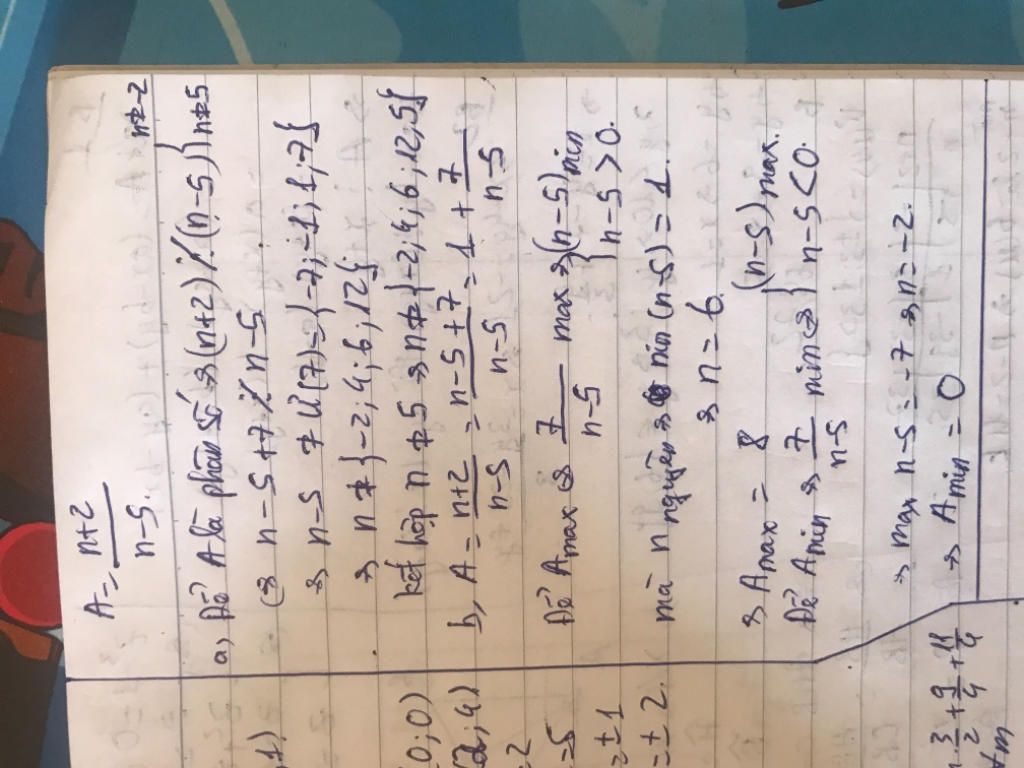 A = n+2 / n-5.
a, Để A là phân số ⇔ (n+2) ⋮̸ (n-5) } n≠5 n≠-2
⇔ n-5+7 ⋮̸ n-5
⇒ n-5 ≠ Ư(7) = {-7; -1; 1; 7}
⇒ n ≠ {-2; 4; 6; 12}
kết hợp n ≠ 5 ⇒ n ≠ {-2; 4; 6; 12; 5}
b, A = n+2 / n-5 = n-5+7 / n-5 = 1 + 7 / n-5
Để A max ⇔ 7 / n-5 max ⇔ { (n-5) min
n-5 > 0.
mà n nguyên ⇒ min (n-5) = 1.
⇒ n = 6.
⇒ A max = 8
Để A min ⇔ 7 / n-5 min ⇔ { (n-5) max.
n-5 < 0.
⇒ max n-5 = -7 ⇒ n = -2.
⇒ A min = 0
+1)
0; 0)
; 4)
2
=5
= ± 1
= ± 2.
3/2 + 9/4 + 11/4